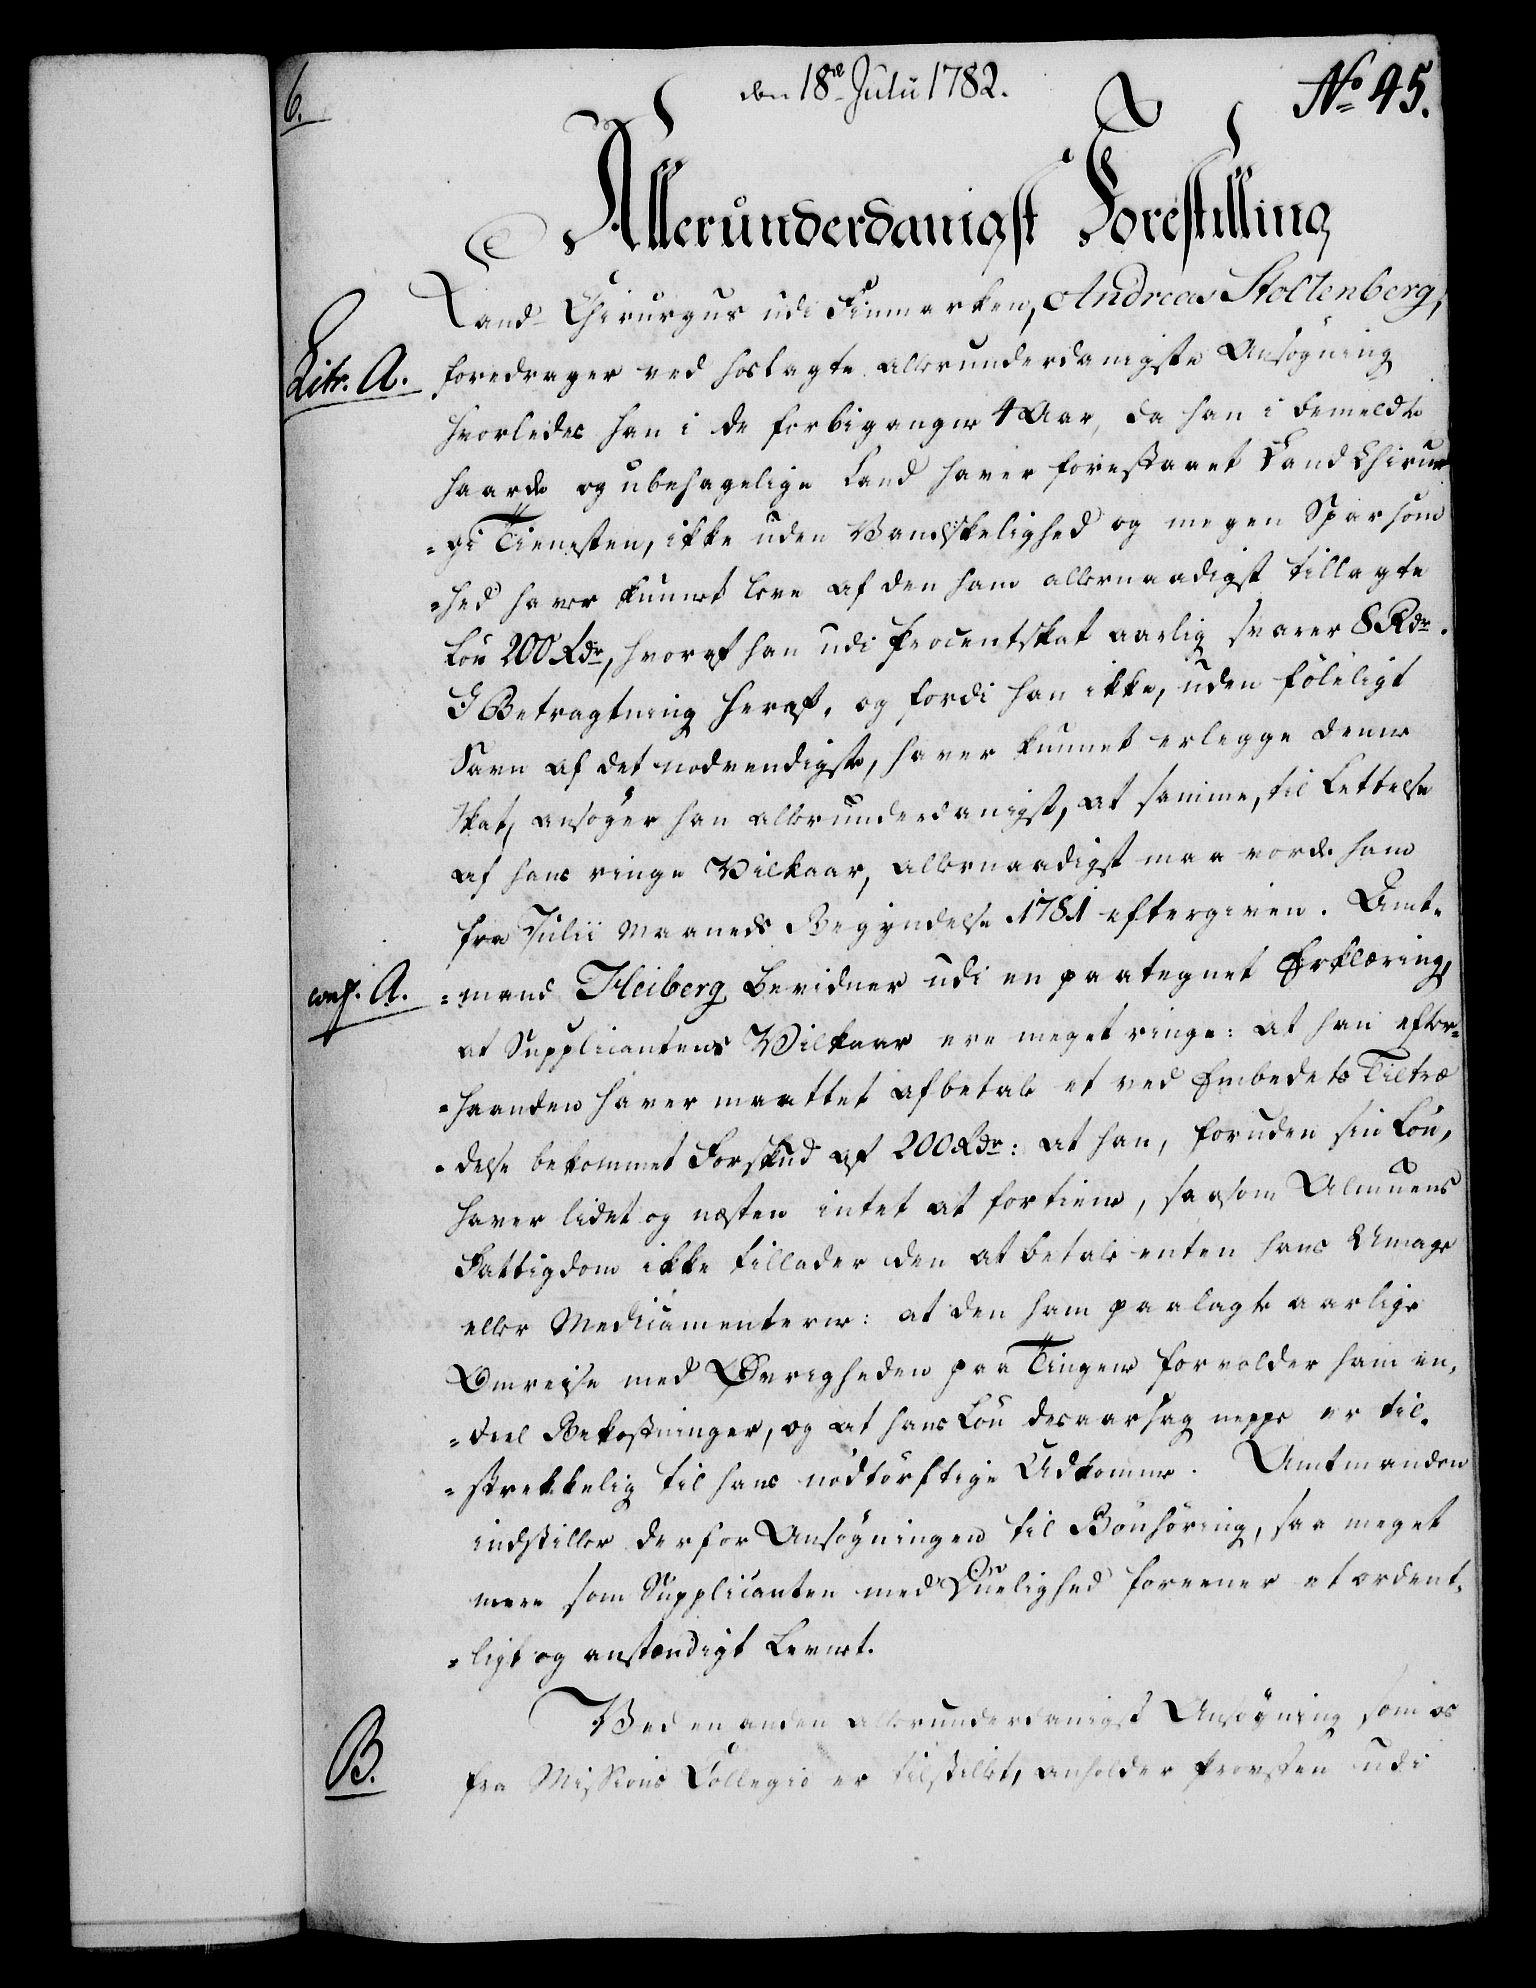 6.
den 18de Julii 1782.
No 45.
Allerunderdanigst Forestilling
Land-Chirurgus udi Finmarken, Andreas Stoltenberg,
Litr. A.
foredrager ved hoslagte allerunderdanigste Ansøgning
hvorledes han i de forbigangne 4 Aar, da han i bemeldte
haarde og ubehagelige Land haver forestaaet Land Chirur
=gi Tienesten, ikke uden Vanskelighed og megen Sparsom
=hed haver kunnet leve af den ham allernaadigst tillagte
Løn 200 Rdr, hvoraf han udi Procentskat aarlig svarer 8 Rdr.
I Betragtning heraf, og fordi han ikke, uden føleligt
Savn af det nødvendigste, haver kunnet erlegge denne
Skat, ansøger han allerunderdanigst, at samme, til Lettelse
af hans ringe Vilkaar, allernaadigst maa vorde ham
fra Julii Maaneds Begyndelse 1781 eftergiven. Amt=
conf. A.
=mand Heiberg bevidner udi en paategnet Erklæring,
at Supplicantens Vilkaar ere meget ringe: at han efter=
=haanden haver maattet afbetale et ved Embedets Tiltræ
=delse bekommet Forskud af 200 Rdr: at han, foruden sin Løn,
haver lidet og næsten intet at fortiene, saasom Almuens
Fattigdom ikke tillader den at betale enten hans Umage
eller Medicamenterne: at den ham paalagte aarlige
Omreise med Øvrigheden paa Tingene forvolder ham en,
=deel Bekostninger, og at hans Løn desaarsag neppe er til=
=strekkelig til hans nødtørftige Udkomme. Amtmanden
indstiller derfor Ansøgningen til Bønhøring, saa meget
mere som Supplicanten med Duelighed foreener et ordent=
=ligt og anstændigt Levnet.
Ved en anden allerunderdanigst Ansøgning som os
B.
fra Missions Collegio er tilstillet, anholder Provsten udi